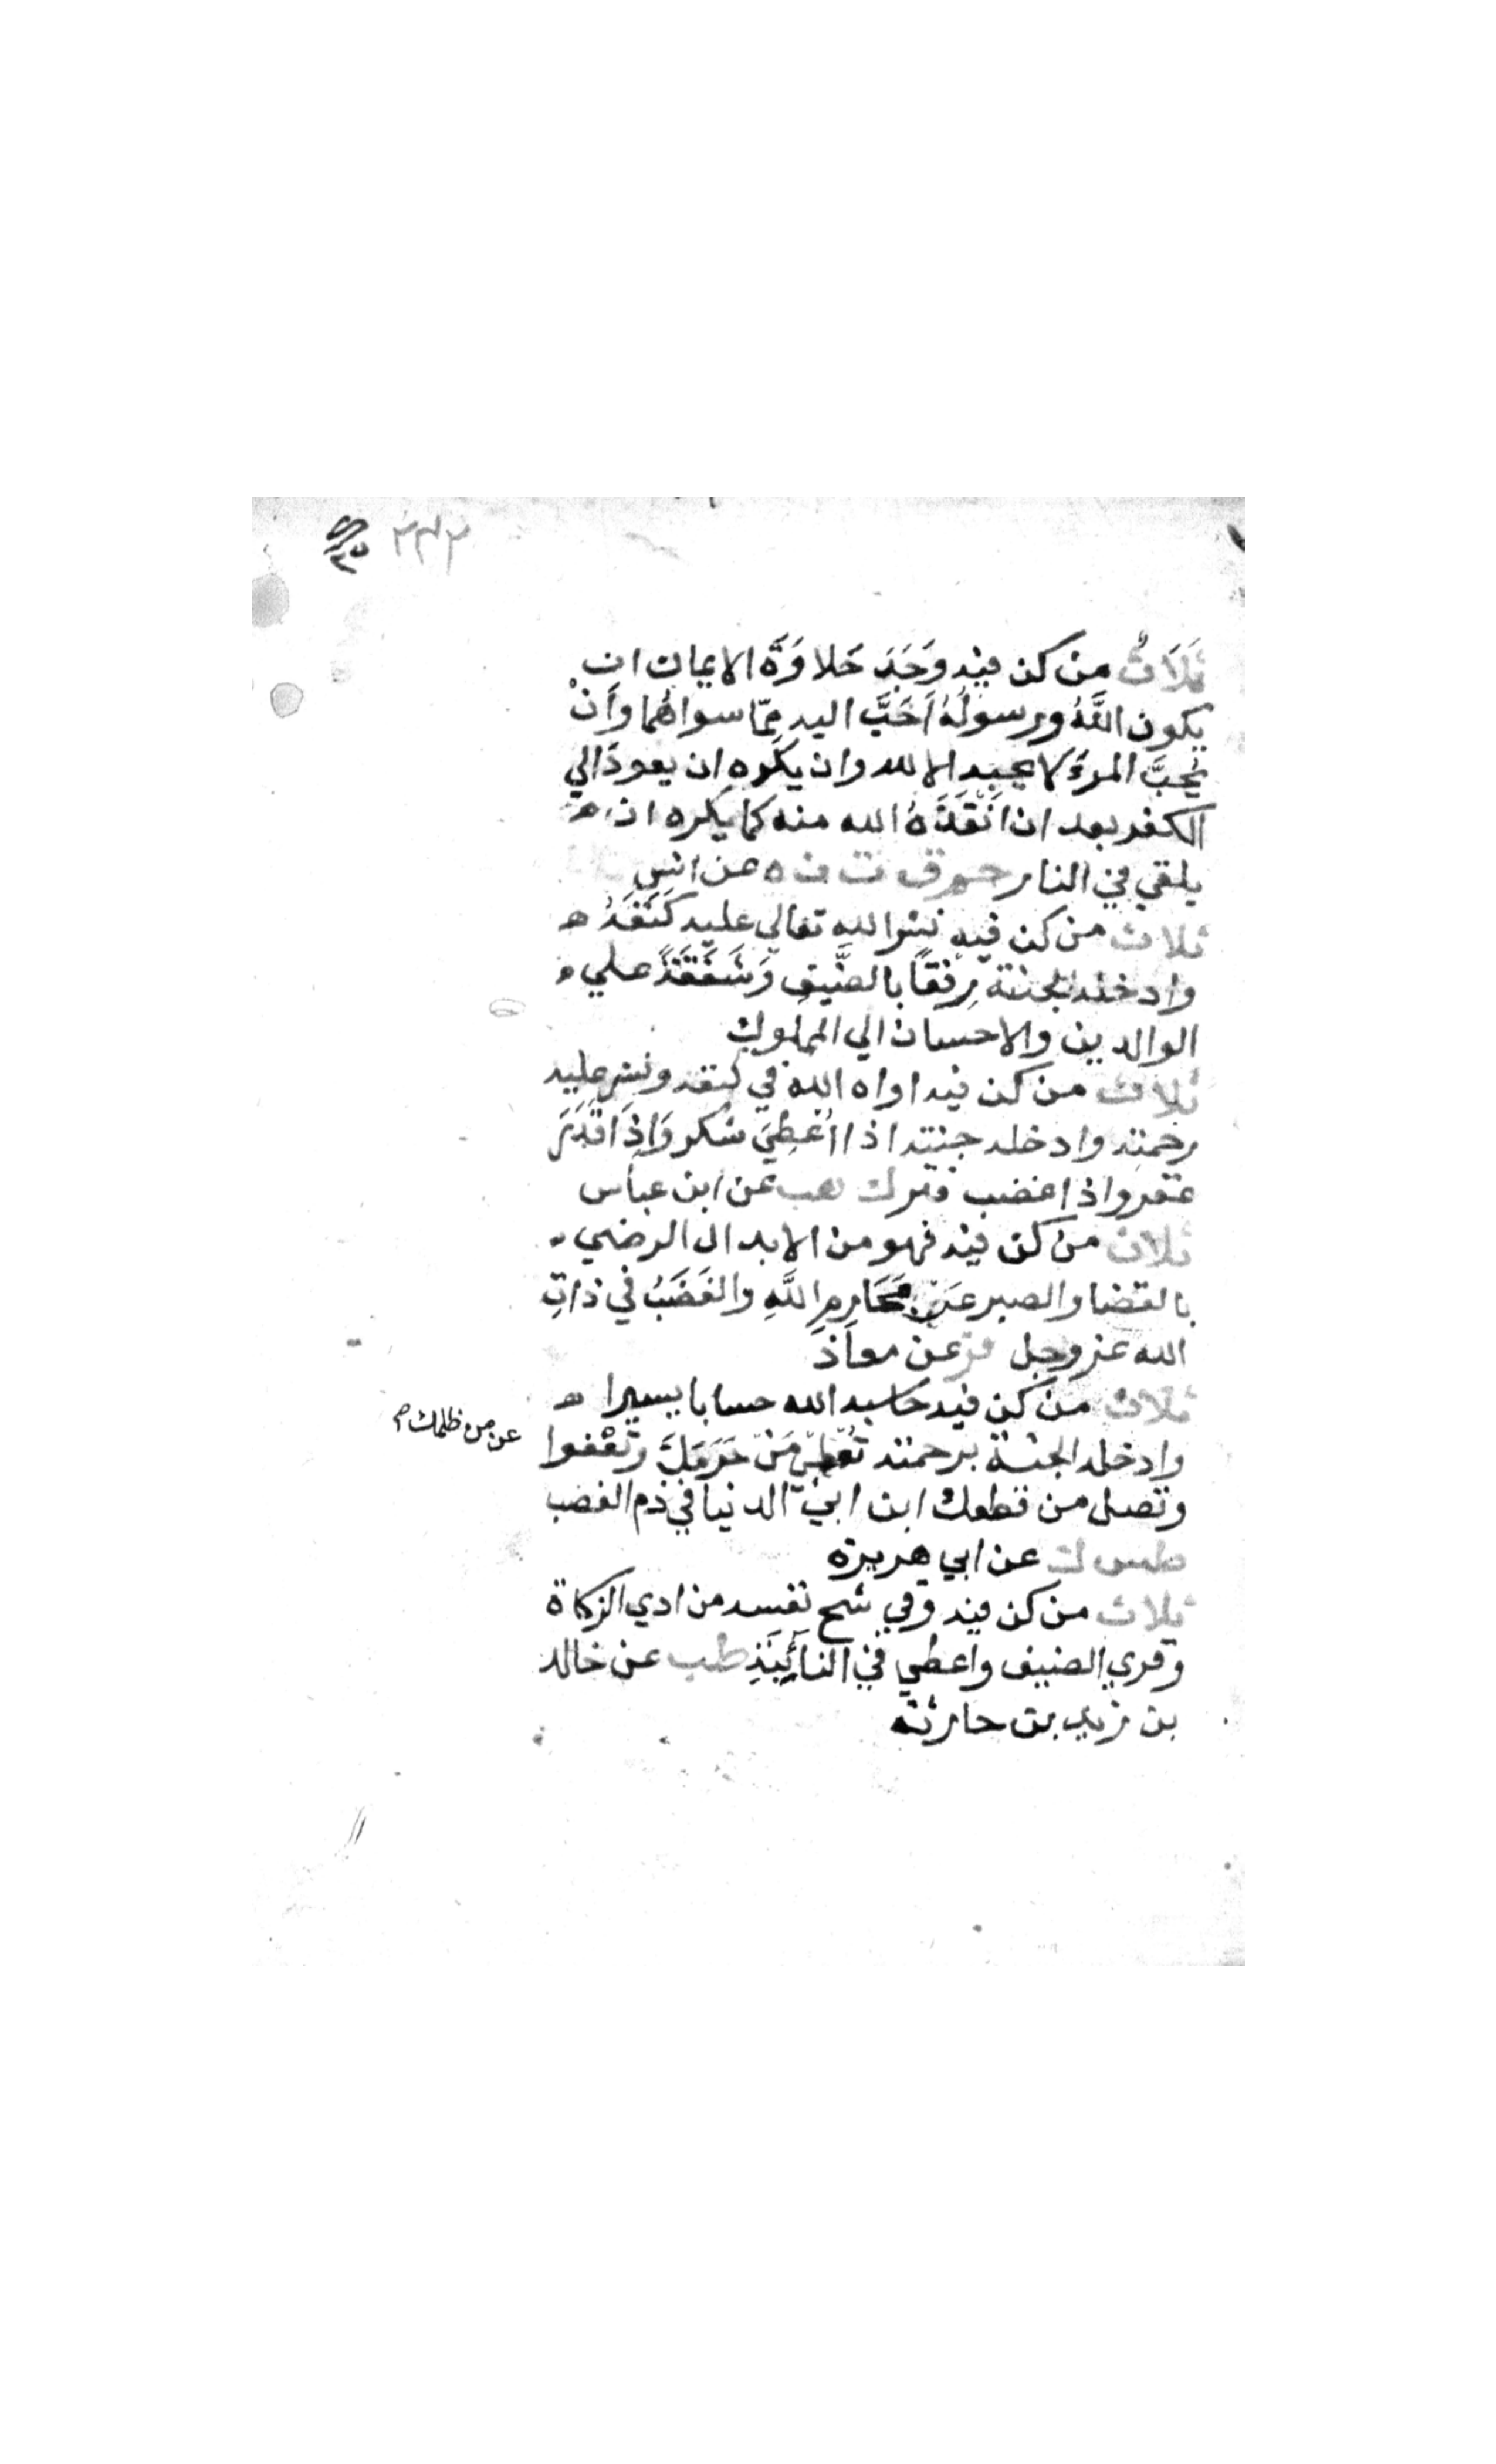 ٢٣٢
ثَلَاثٌ من كن فيه وَجَدَ حَلاوَةَ الايمان ان
يكون اللَّهُ ورسولُهُ اَحَبَّ اليه مِمّا سواهُما وَاَنْ
يُحِبَّ المرءَ لا يحبه الا لله وان يكره ان يعودَ الي
الكفر بعد ان اَنْقَذَهُ الله منه كما يكره ان
يلقي في النار حم ق ت ن ه عن انسِ
ثلاث من كن فيه نشر الله تعالي عليه كَنَفَهُ
وادخله الجنة رِفْقًا بالضَّيفِ وَشَفَقَةً علي
الوالدين والاحسان الي المملوك
ثلاث من كن فيه اواه الله في كنفه ونشر عليه
رحمته وادخله جنته اذا اُعْطِيَ شكر وَاِذَا قَدَرَ
غفر واذا غضب فتر ك هب عن ابن عباس
ثلاث من كن فيه فهو من الابدال الرضي
بالقضا والصبر عَن مَحَارِمِ اللَّهِ والغَضَبُ في ذاتِ
الله عز وجل فر عن معاذ
ثلاث من كن فيه حاسبه الله حسابا يسيرا
وادخله الجنة برحمته تُعْطِي مَنْ حَرَمَكَ وتَعْفوا
عن من ظلمك
وتصل من قطعك ابن ابي الدنيا في ذم الغضب
طس ك عن ابي هريرة
ثلاث من كن فيه وقي شح نفسه من ادي الزكاة
وقري الضيف واعطي في النائِبَةِ طب عن خالد
بن زيد بن حارثه